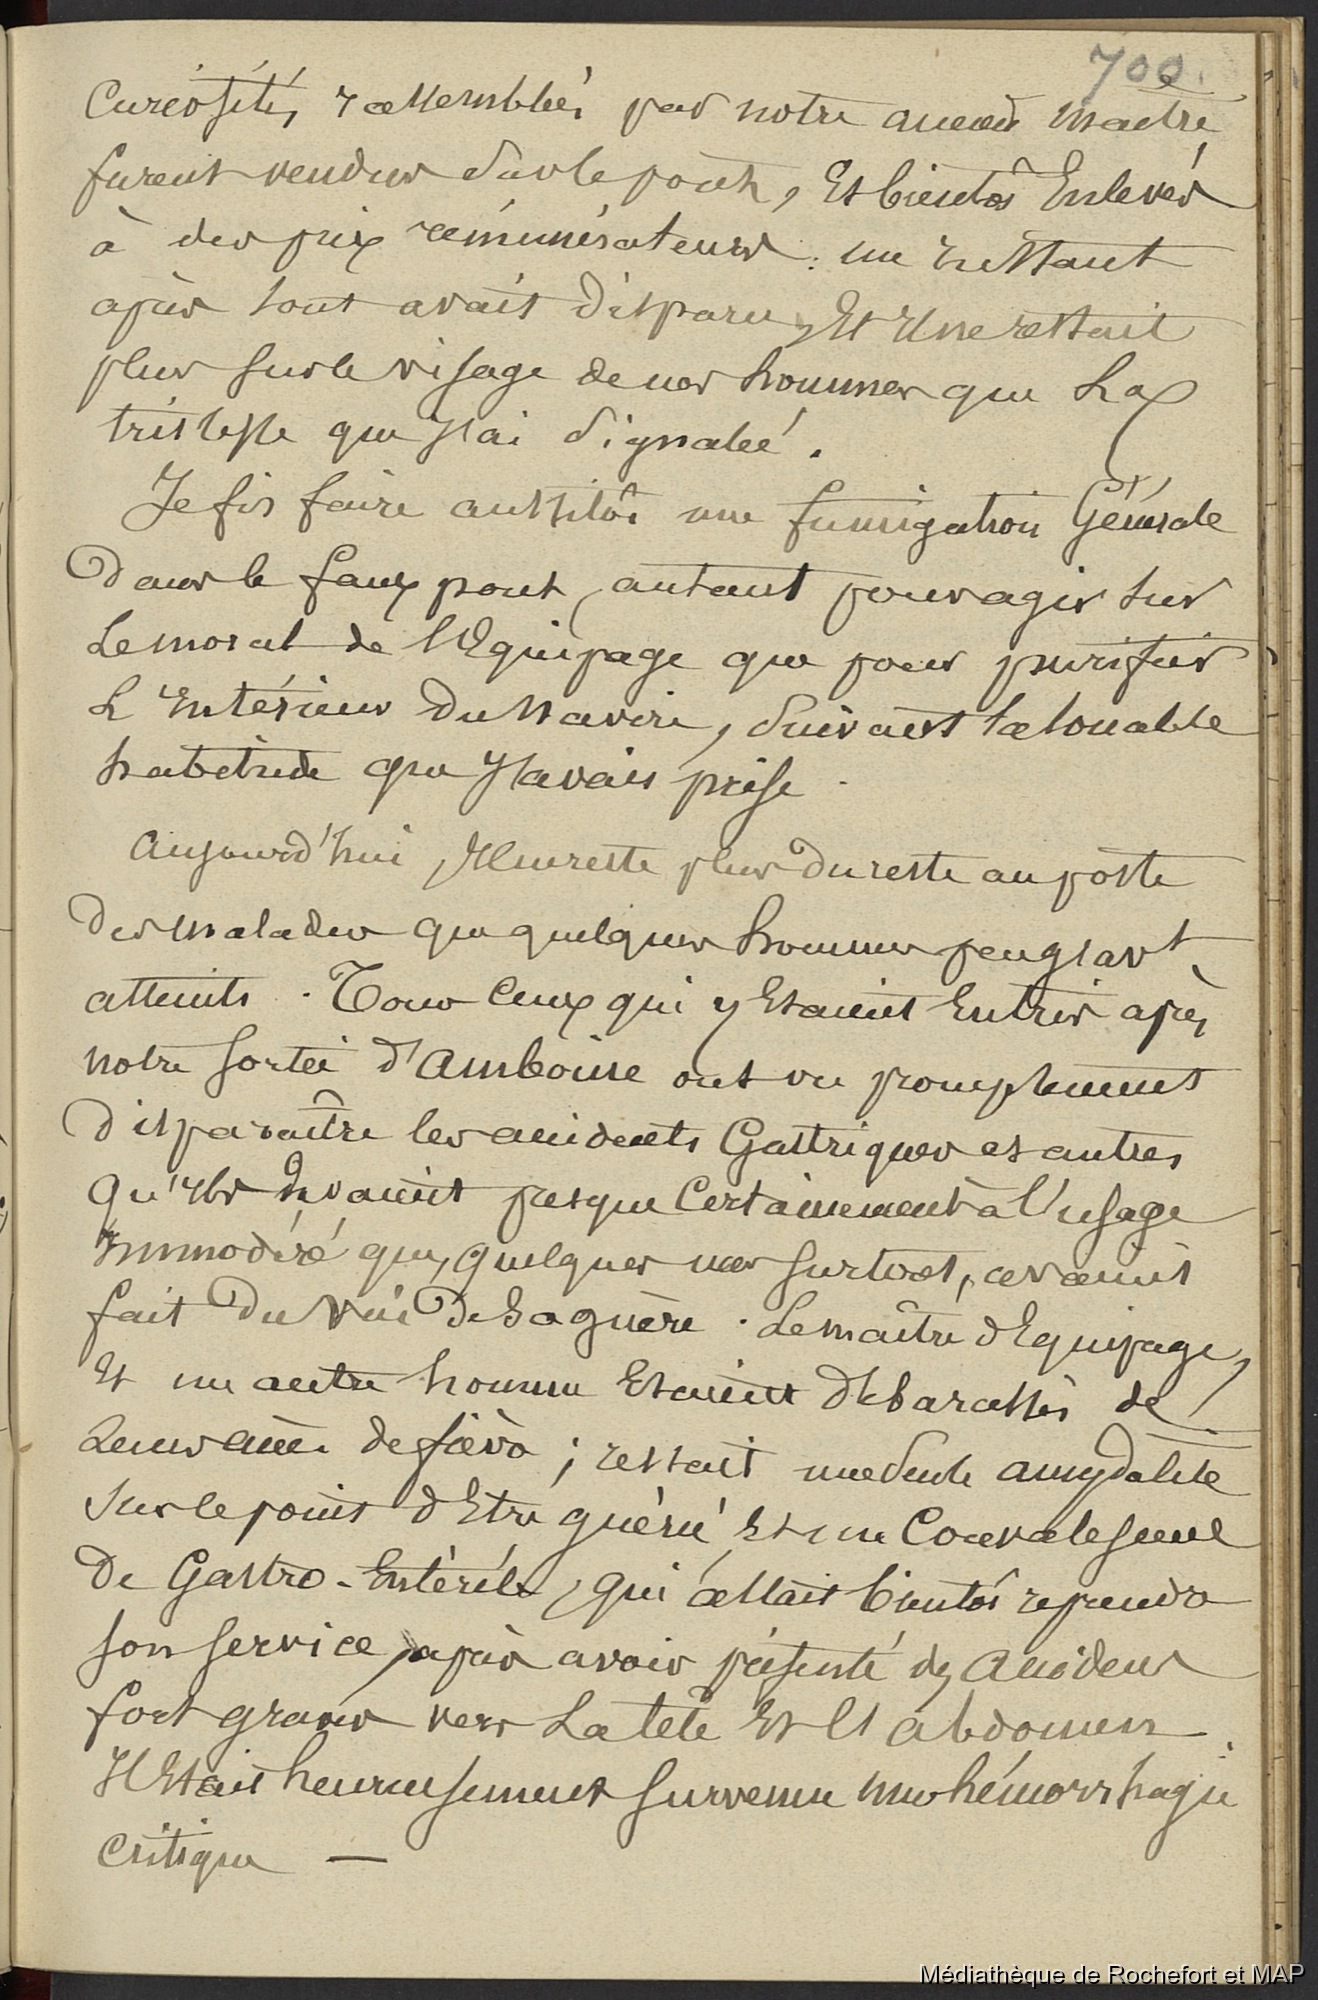 700.
Curiosités, rassemblées par notre ancien maître
furent vendus sur le pont, Et bientôt Enlevés
à des prix rémunérateurs : un instant
après tout avait disparu, Et Il ne restait
plus sur le visage de nos hommes que La
tristesse que J'ai signalée.
Je fis faire aussitôt une fumigation Générale
Dans le faux pont, autant pour agir sur
Le moral de l'Equipage que pour purifier
L'Intérieur Du Navire, suivant la louable
habitude que J'avais prise.
Aujourd'hui, Il ne reste plus Du reste au poste
Des malades que quelques hommes peu gravt
atteints. Tous Ceux qui y Etaient Entrés après
notre sortie d'Amboine ont vu promptement
Disparaître les accidents Gastriques et autres
Qu'Ils Devaient presque Certainement à l'usage
Immodéré que, Quelques uns surtout, avaient
fait Du Vin De Saguère. Le maître d'Equipage,
Et un autre homme Etaient Débarassés de
Leurs accès de fièvre ; restait une seule amygdalite
sur le point d'Etre guérie Et un Convalescent
De Gastro-Entérite, qui allait bientôt reprendre
son service, après avoir présenté des accidens
fort graves vers La tête Et l'abdomen.
Il Etait heureusement survenu une hémorrhagie
critique —
Médiathèque de Rochefort et MAP